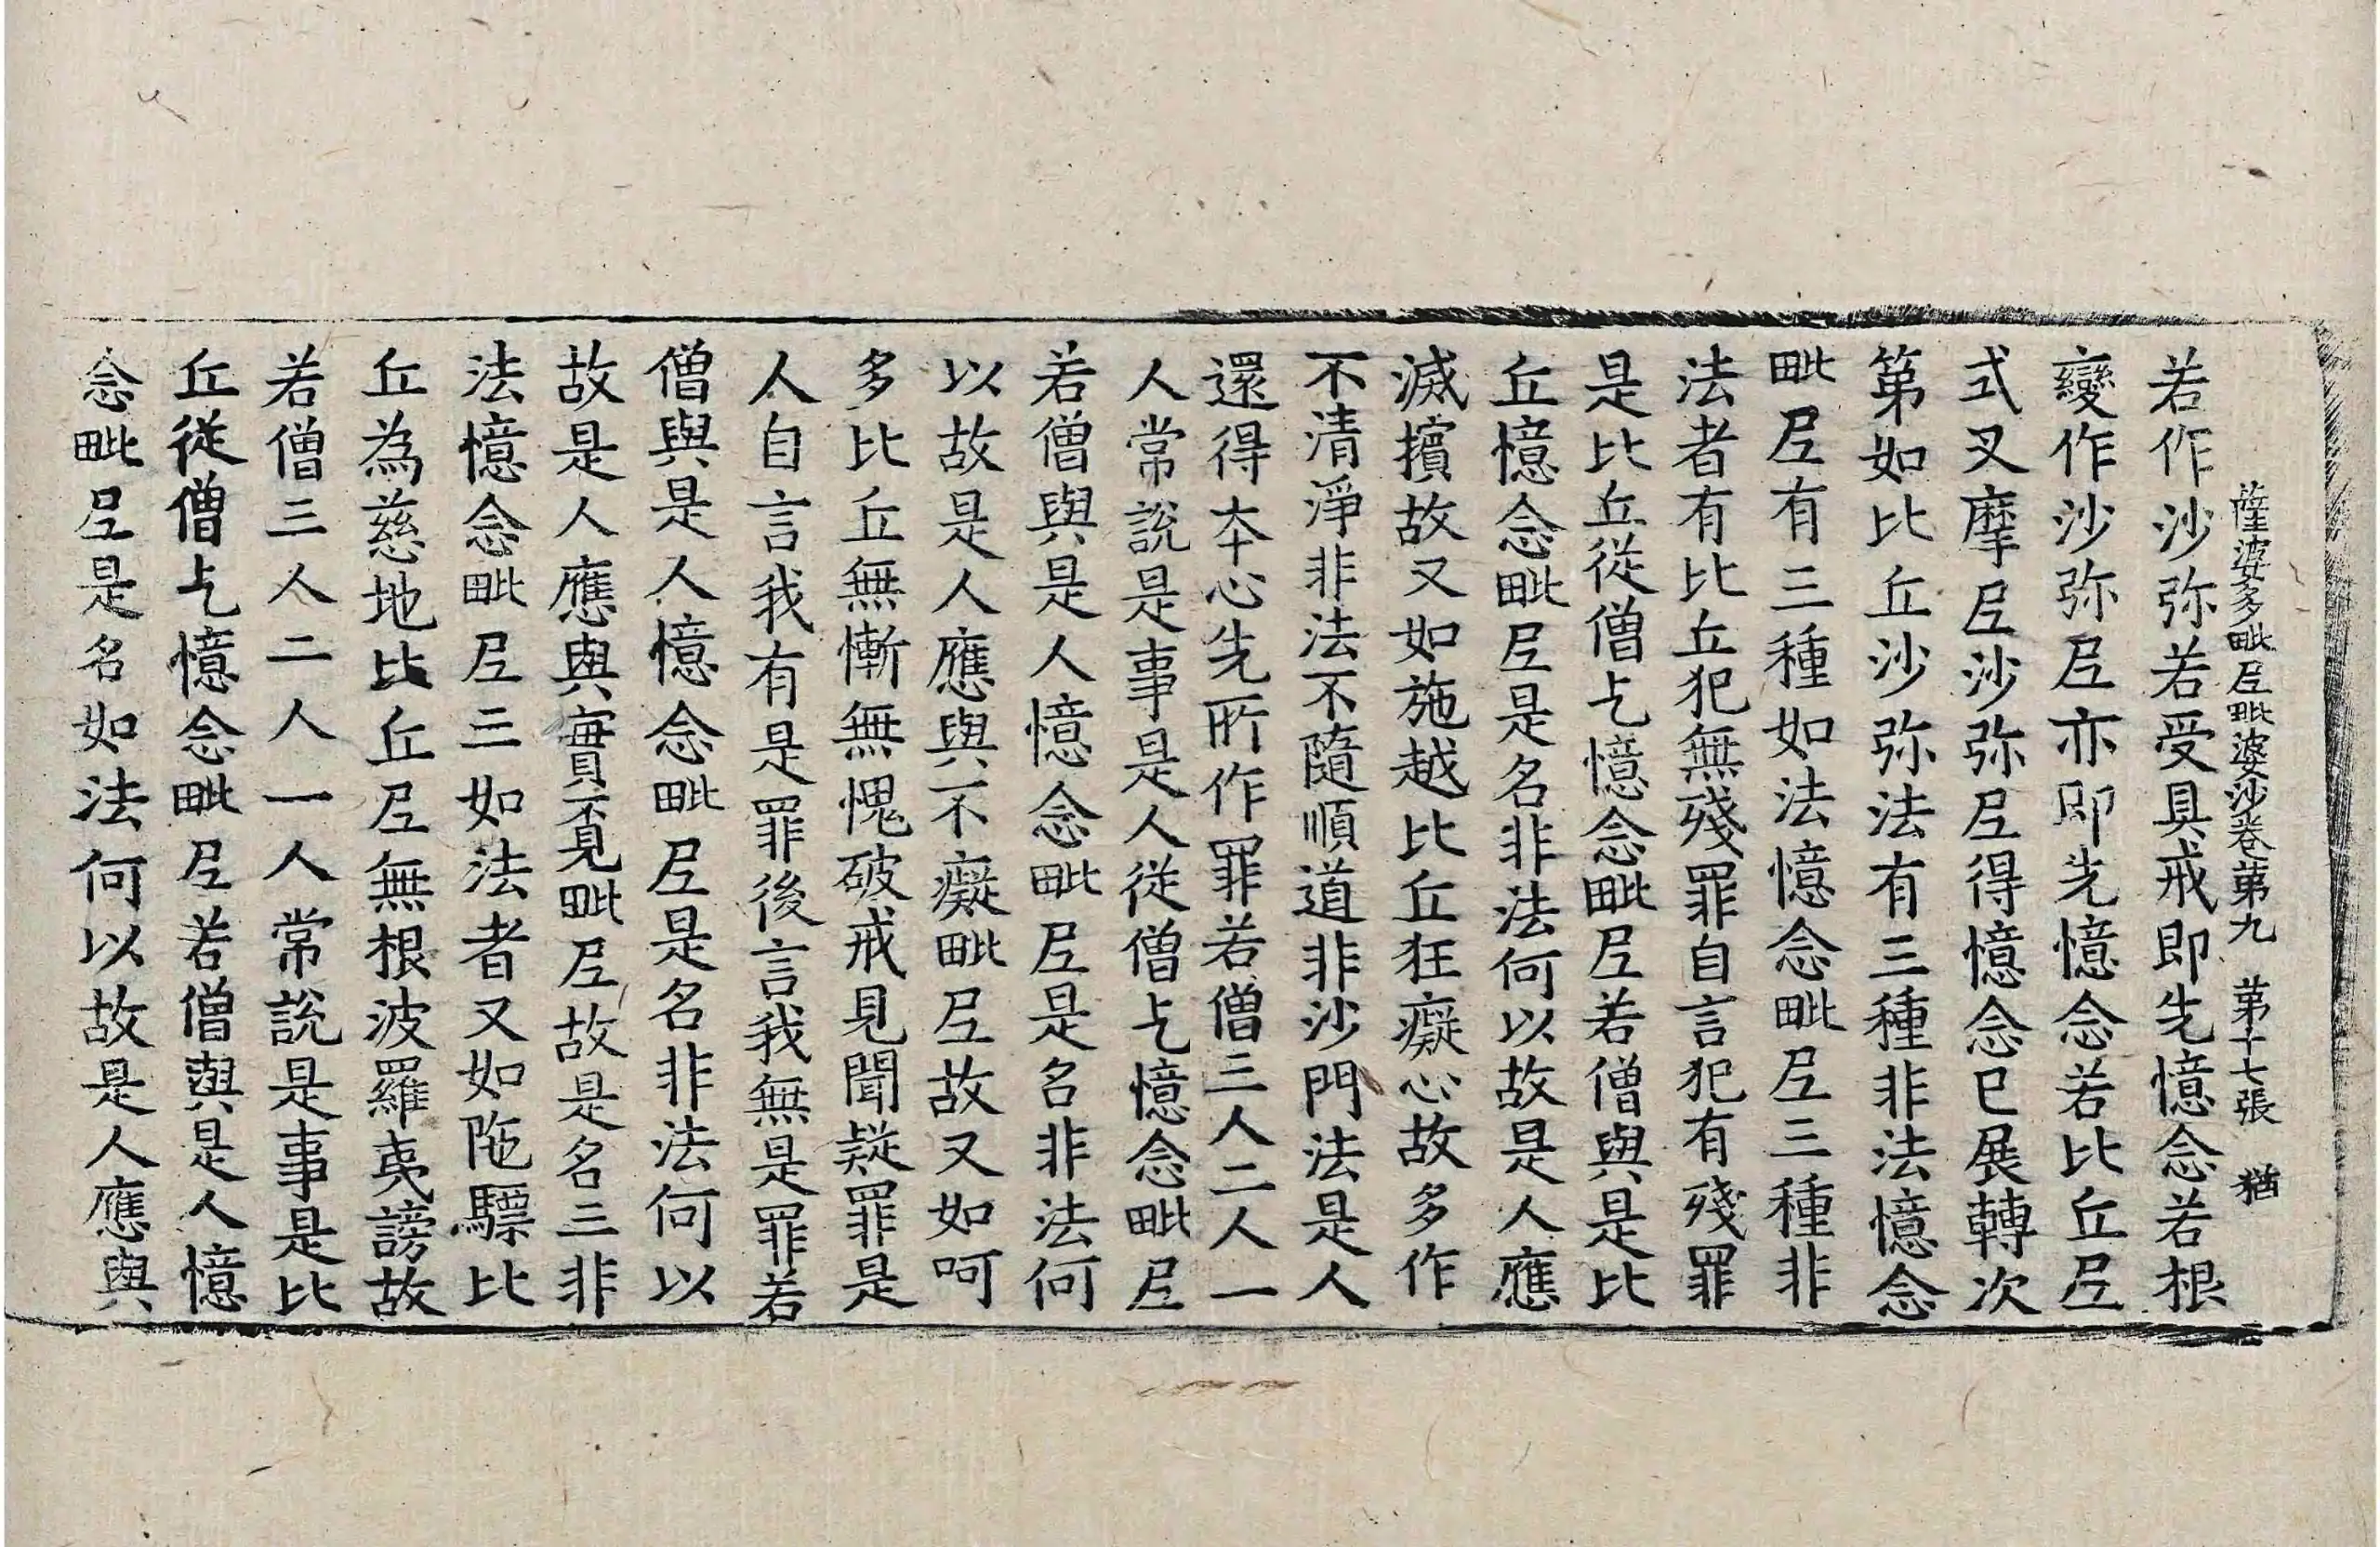 薩婆多毗尼毗婆沙卷第九　第十七張　猶
若作沙弥若受具戒即先憶念若根
變作沙弥尼亦即先憶念若比丘尼
式叉摩尼沙弥尼得憶念已展轉次
第如比丘沙弥法有三種非法憶念
毗尼有三種如法憶念毗尼三種非
法者有比丘犯無殘罪自言犯有殘罪
是比丘從僧乞憶念毗尼若僧與是比
丘憶念毗尼是名非法何以故是人應
滅擯故又如施越比丘狂癡心故多作
不清淨非法不隨順道非沙門法是人
還得本心先所作罪若僧三人二人一
人常說是事是人從僧乞憶念毗尼
若僧與是人憶念毗尼是名非法何
以故是人應與不癡毗尼故又如呵
多比丘無慚無愧破戒見聞疑罪是
人自言我有是罪後言我無是罪若
僧與是人憶念毗尼是名非法何以
故是人應與實覓毗尼故是名三非
法憶念毗尼三如法者又如陁驃比
丘為慈地比丘尼無根波羅夷謗故
若僧三人二人一人常說是事是比
丘從僧乞憶念毗尼若僧與是人憶
念毗尼是名如法何以故是人應與